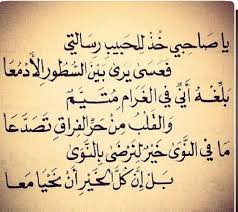 يا صَاحِبي خُذ لِلحَبيبِ رِسَالتي
فَعَسَى يَرى بَيْنَ السُّطُورِ الأَدْمُعَا
بَلِّغْهُ أَنِّي في الغَرامِ مُتَيَّمٌ
وَالقَلْبُ مِنْ حَرِّ الفِرَاقِ تَصَدَّعَا
مَا في النَّوَى خَيْرٌ لِنَرْضَى بِالنَّوَى
بَلْ إِنَّ كُلَّ الخَيْرِ أَنْ نَحْيَا مَعَا